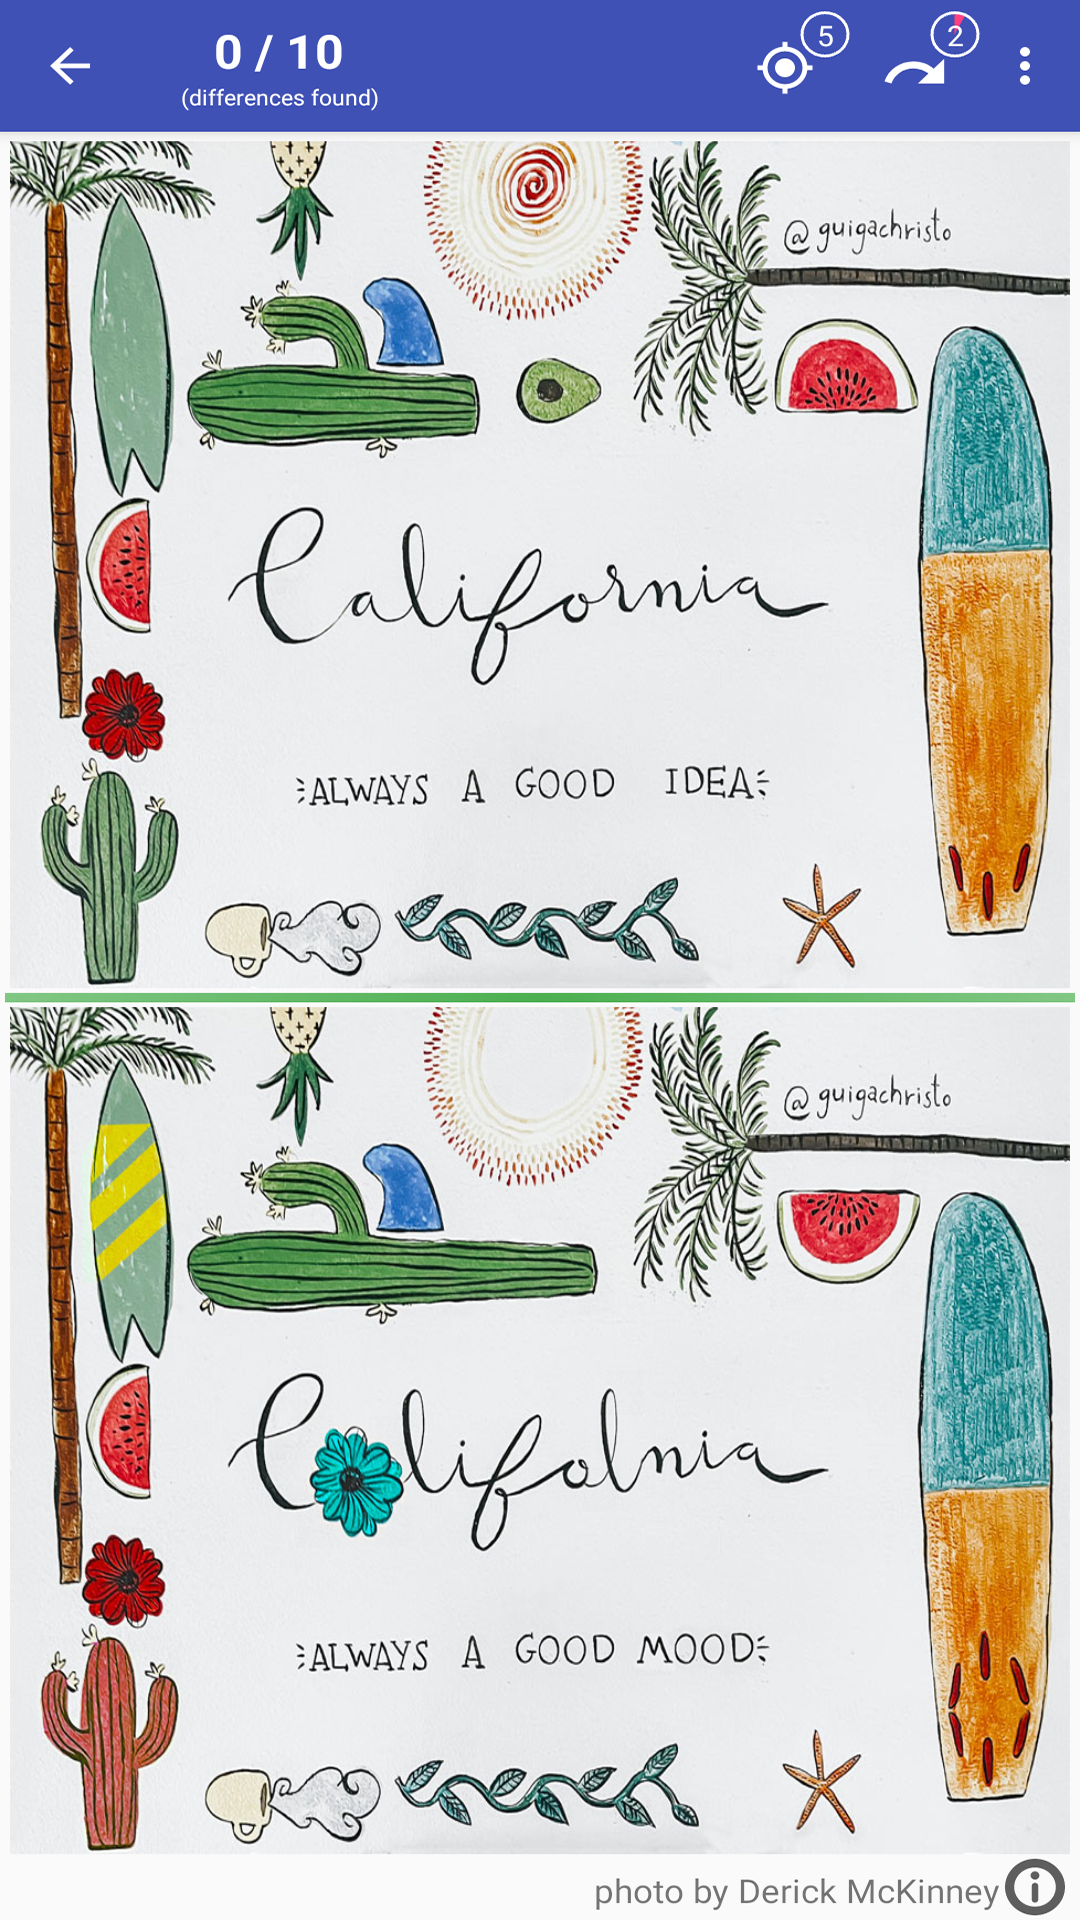 0 / 10
(differences found)
5
2
@guigachristo
California
ALWAYS A GOOD IDEA
@guigachristo
C lifolnia
ALWAYS A GOOD MOOD
photo by Derick McKinney